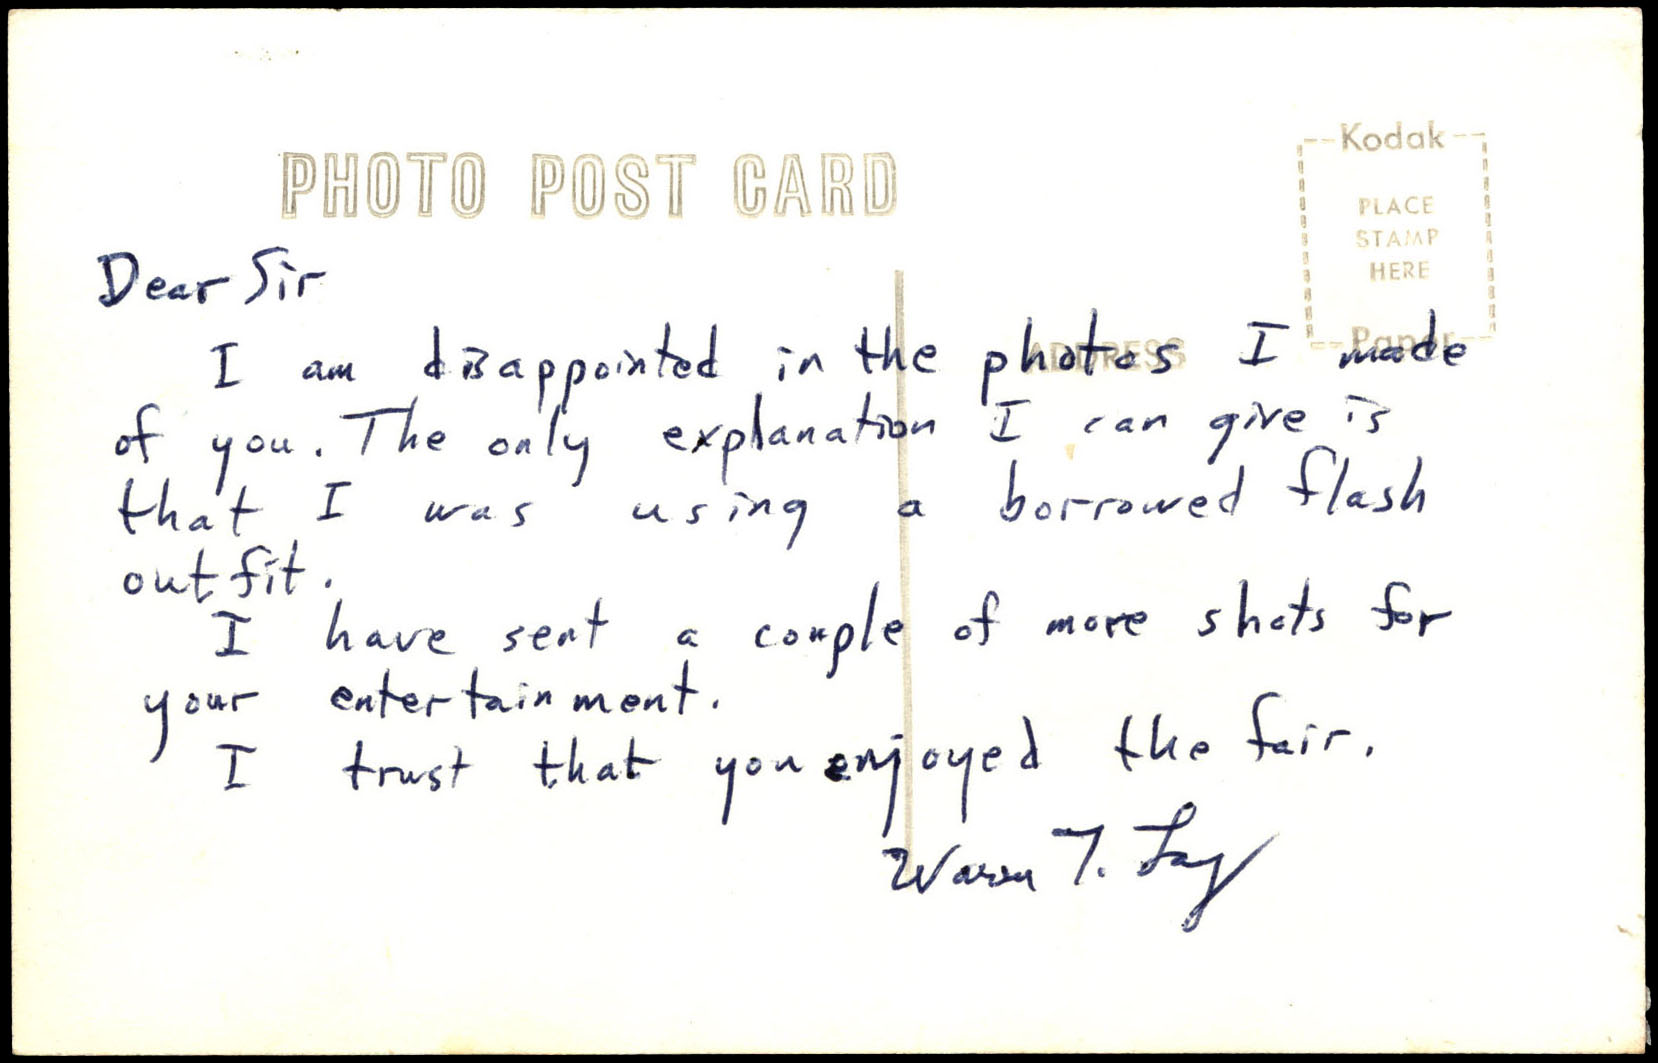 Kodak
PHOTO POST CARD
PLACE
STAMP
HERE
Paper
ADDRESS
Dear Sir
I am disappointed in the photos I made
of you. The only explanation I can give is
that I was using a borrowed flash
outfit.
I have sent a couple of more shots for
your entertainment.
I trust that you enjoyed the fair.
Warren T.